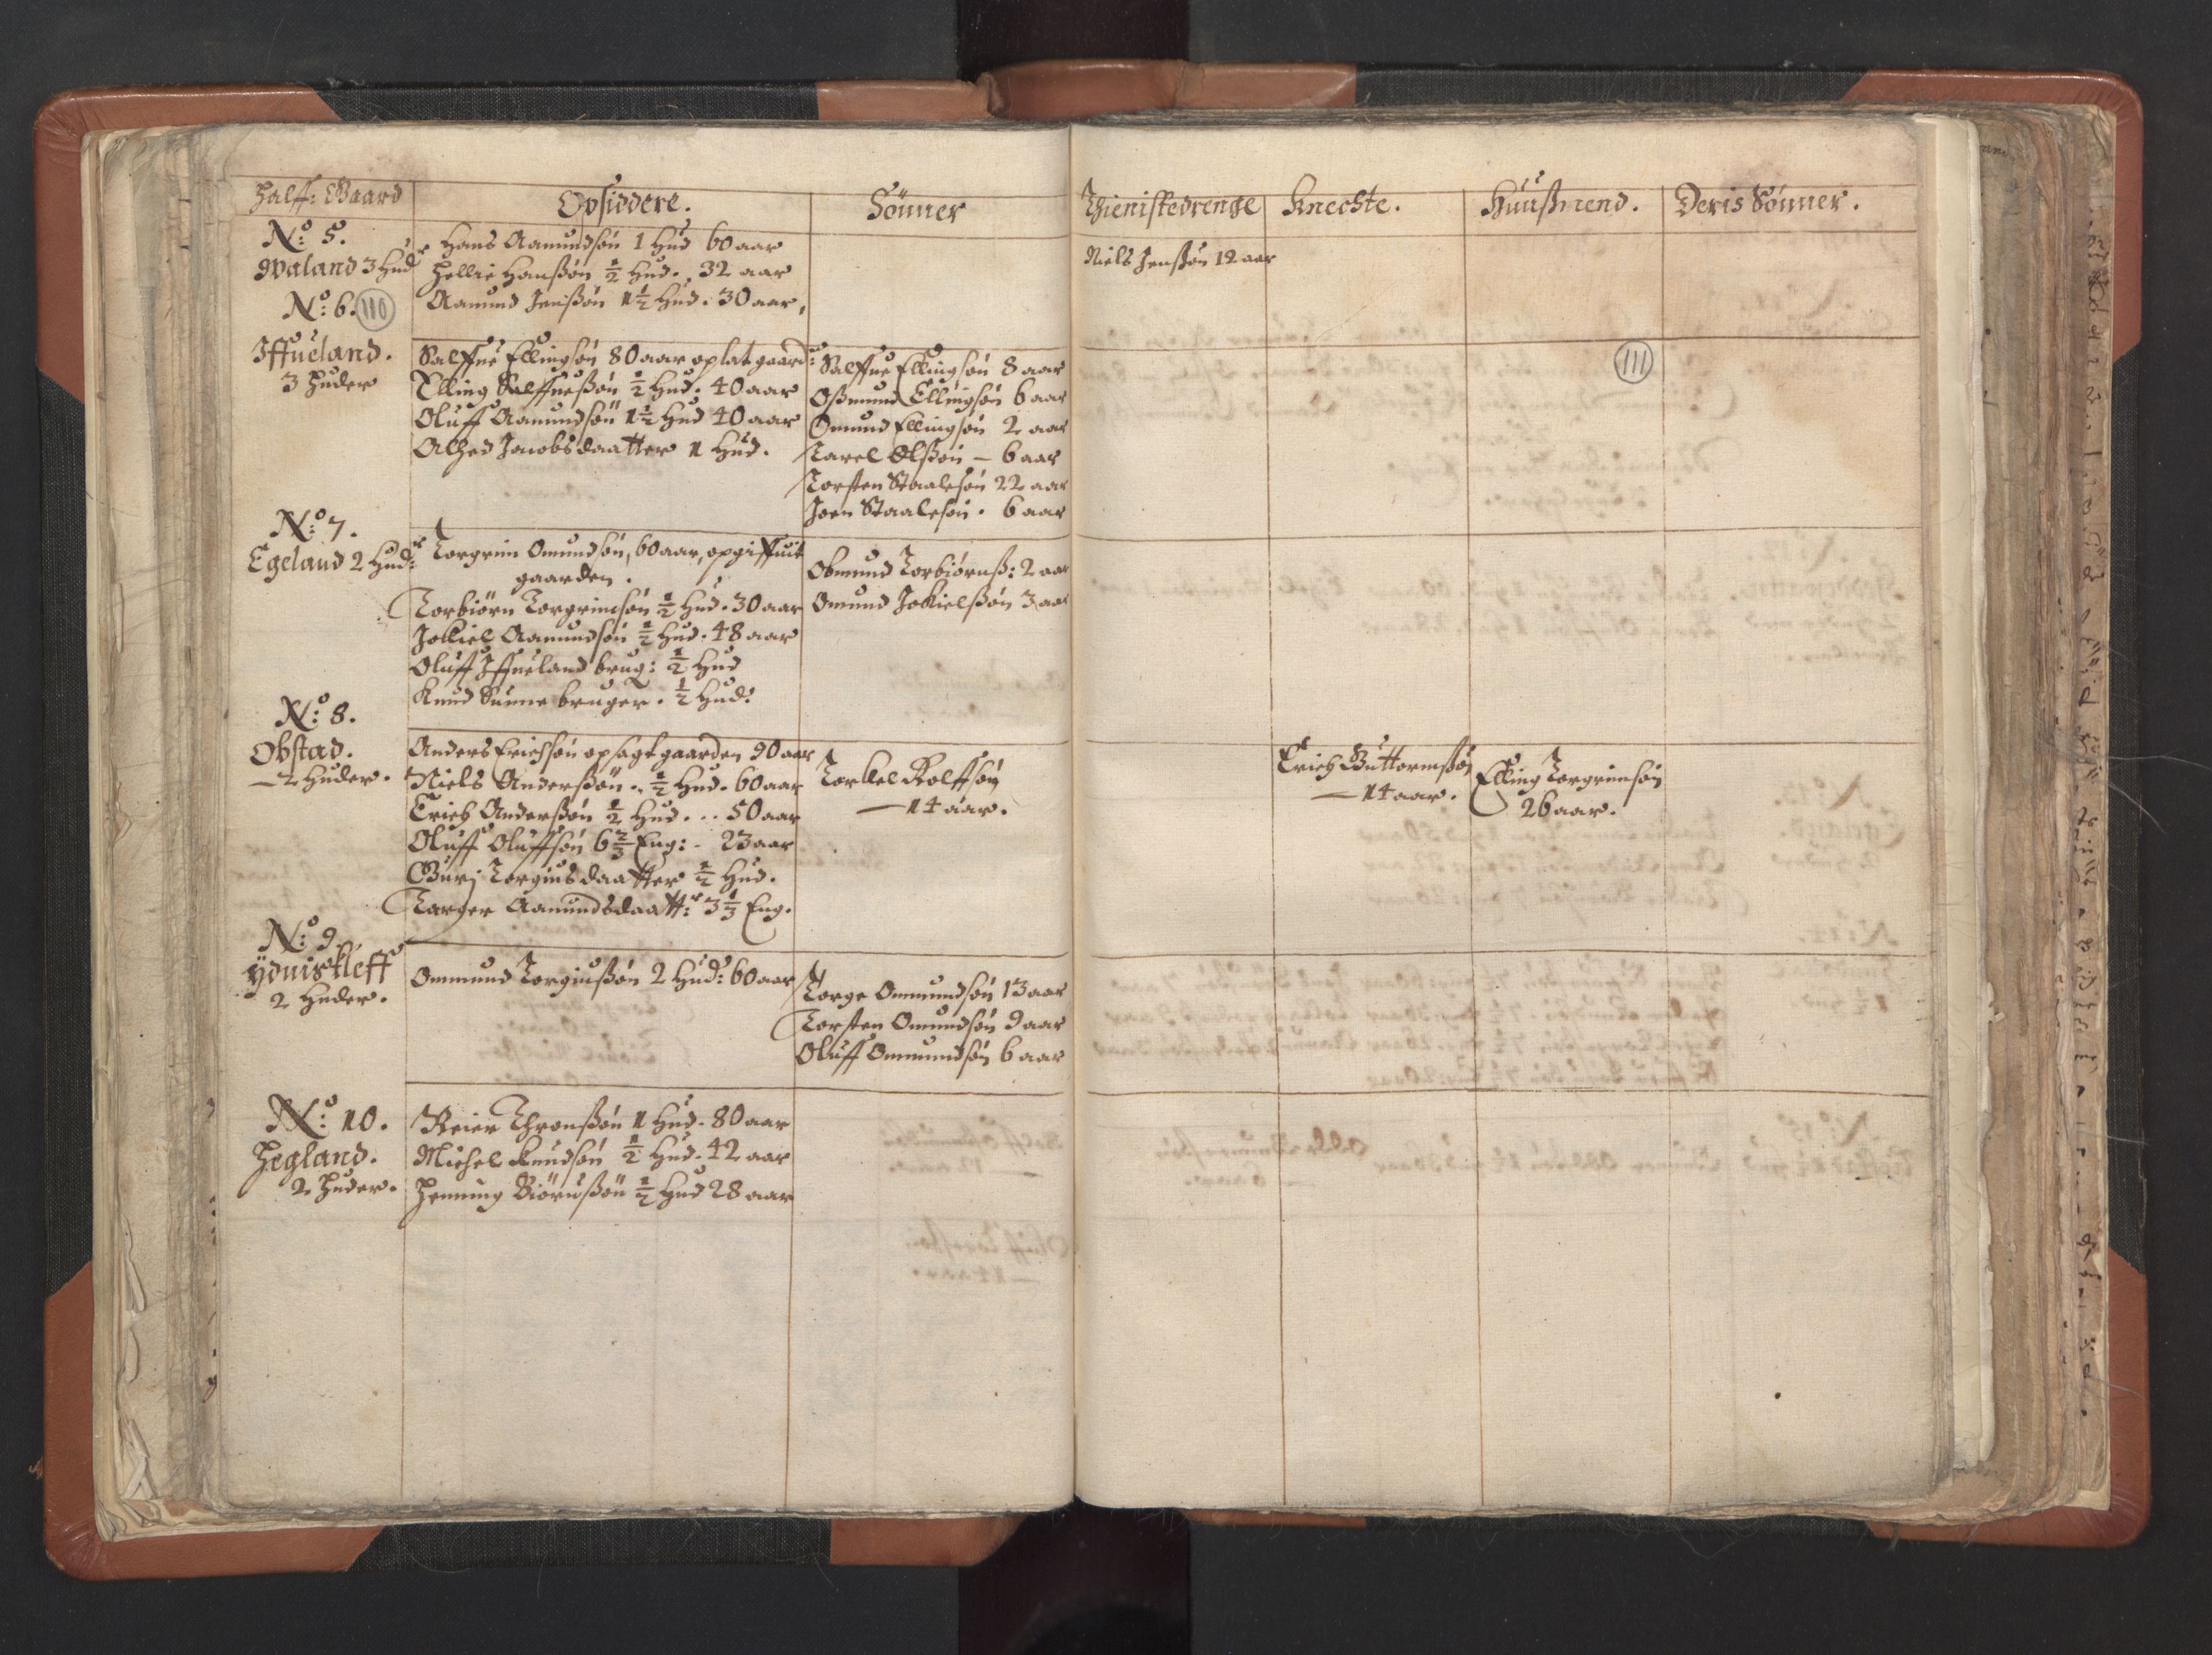 Halff: Gaard
Opsiddere.
Sönner
Thienistedrenge
Knechte.
Huußmend.
Deris Sönner.
No: 5.
Hualand 3 Hudr
Hans Aamundsön 1 Hud 60 aar
Hellie Hanßön ½ Hud. 32 aar
Aamund Jenßön 1½ Hud. 30 aar,
Niels Jenßön 12 aar
No: 6.
110
111
Iffueland.
3 Huder
Salffue Ellingsön 80 aar oplat gaardn:
Elling Salffueßön ½ Hud. 40 aar
Oluff Aamundsön 1½ Hud 40 aar
Alhed Jacobsdaatter 1 Hud.
Salffue Ellingsön 8 aar
Oßmund Ellingsön 6 aar
Omund Ellingsön 2 aar
Tarel Olßön - 6 aar
Torsten Staalesön 22 aar
Joen Staalesön. 6 aar
No: 7.
Egeland 2 Hudr:
Torgrim Omundsön, 60 aar, opgiffuit
gaarden.
Torbiörn Torgrimsön ½ Hud. 30 aar
Jokiel Aamundsön ½ Hud. 48 aar
Oluff Iffueland brug: ½ Hud
Knud Sunne bruger. ½ Hud:
Obmund Torbiörnß: 2 aar
Omund Jokielßön 3 aar
No: 8.
Obstad.
- 2 Huder.
Anders Erichsön opsagt gaarden 90 aar
Niels Anderßön. ½ Hud. 60 aar
Erich Anderßön ½ Hud... 50 aar
Oluff Oluffsön 6⅔ Eng: - 23 aar
Gurj Torgiusdaatter ½ Hud.
Targer Aamundsdaattr: 3⅓ Eng.
Torkel Rolffsön
- 14 aar.
Erich Guttormßön
- 14 aar.
Elling Torgrimsön
26 aar.
No: 9.
Ydniskleff
2 Huder.
Ommund Torgiußön 2 Hud: 60 aar
Torge Ommundsön 13 aar
Torsten Omundsön 9 aar
Oluff Ommundsön 6 aar
No: 10.
Hegland.
2 Huder.
Reier Thronßön 1 Hud. 80 aar
Michel Knudsön ½ Hud. 42 aar
Henning Biörnßön ½ Hud 28 aar